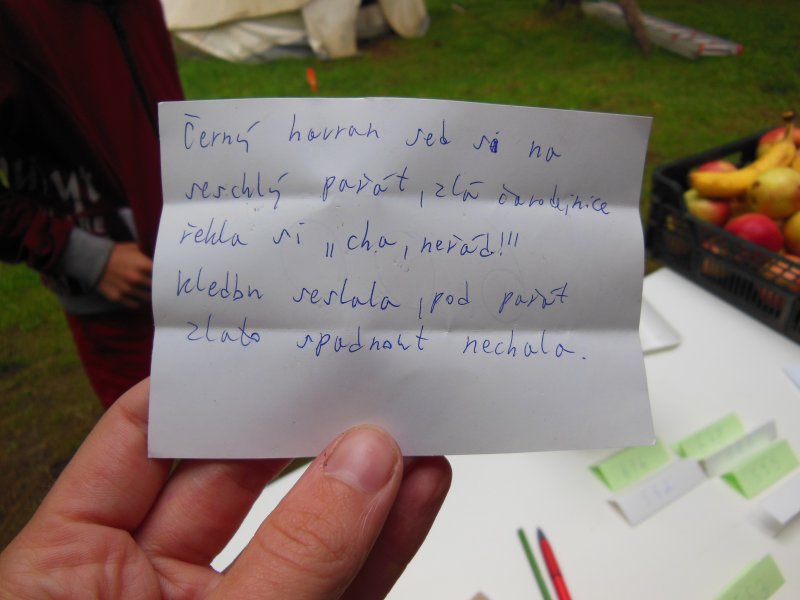 Černý havran sed si na
seschlý pařát, zlá čarodejnice
řekla si „cha, neřád!!"
kledbu seslala, pod pařát
zlato spadnout nechala.